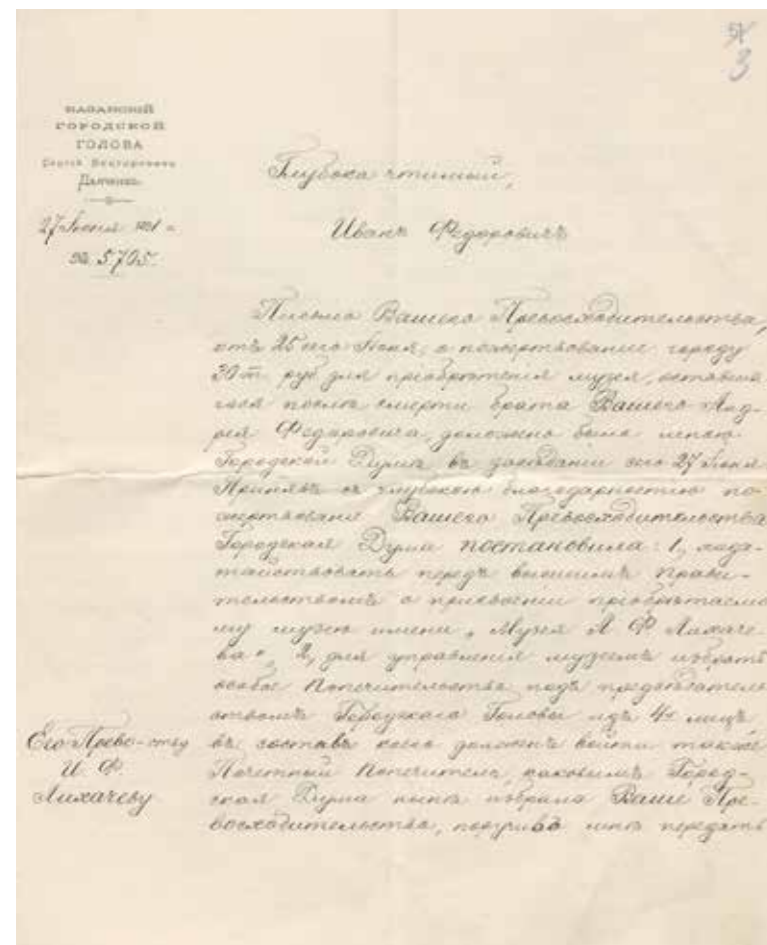 51
3
КАЗАНСКІЙ
ГОРОДСКОЙ
ГОЛОВА
Сергѣй Викторовичъ
Дьяченко.
27 Іюня 1891 г.
№ 5705.
Глубоко чтимый,
Иванъ Федоровичъ
Письмо Вашего Превосходительства,
отъ 25 сего Іюня, о пожертвованіи городу
30 т. руб для пріобрѣтенія музея, оставша
гося послѣ смерти брата Вашего Анд-
рея Федоровича, доложено было мною
Городской Думѣ въ засѣданіи сего 27 Іюня
Принявъ съ глубокою благодарностью по
жертвованіе Вашего Превосходительства
Городская Дума постановила: 1, хода-
тайствовать передъ высшимъ Прави-
тельствомъ о присвоеніи пріобрѣтаемо
му музею имени „Музея А Ф Лихаче-
ва", 2, для управленія музеемъ избрать
особое Попечительство подъ предсѣдатель
ствомъ Городскаго Головы изъ 4х лицъ
въ составъ коего долженъ войти также
Почетный Попечитель, каковымъ Город-
ская Дума нынѣ избрала Ваше Пре-
восходительство, поручивъ мнѣ передать
Его Превос-ству
И. Ф.
Лихачеву